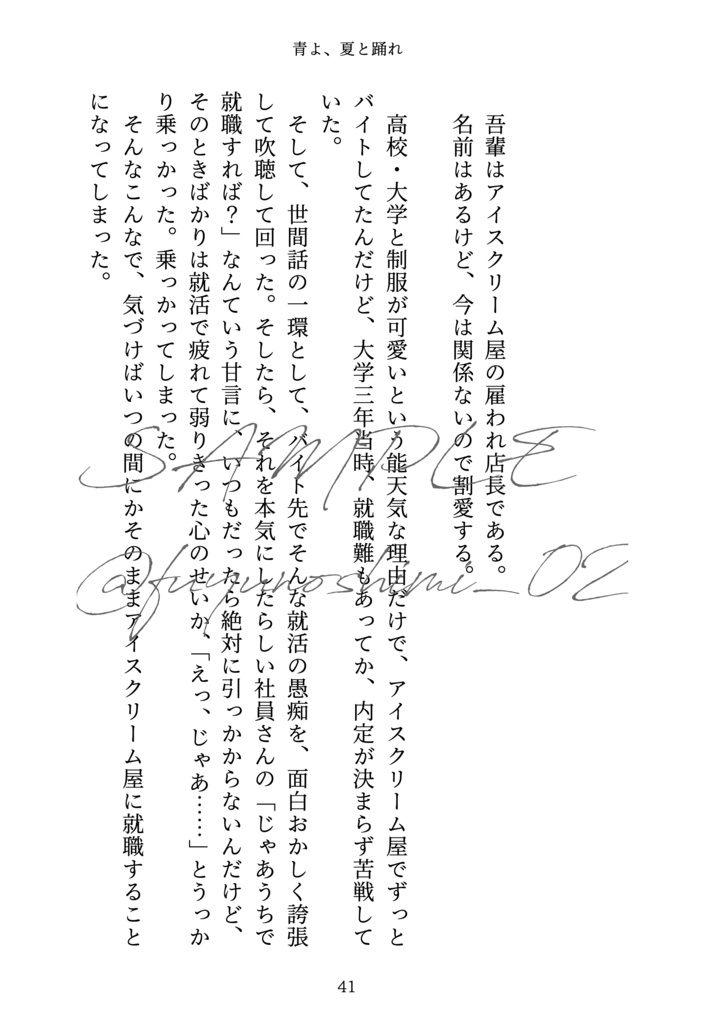 青よ、夏と踊れ
吾輩はアイスクリーム屋の雇われ店長である。
名前はあるけど、今は関係ないので割愛する。
高校・大学と制服が可愛いという能天気な理由だけで、アイスクリーム屋でずっと
バイトしてたんだけど、大学三年当時、就職難もあってか、内定が決まらず苦戦して
いた。
そして、世間話の一環として、バイト先でそんな就活の愚痴を、面白おかしく誇張
して吹聴して回った。そしたら、それを本気にしたらしい社員さんの「じゃあうちで
就職すれば？」なんていう甘言に、いつもだったら絶対に引っかからないんだけど、
そのときばかりは就活で疲れて弱りきった心のせいか、「えっ、じゃあ……」とうっか
り乗っかった。乗っかってしまった。
そんなこんなで、気づけばいつの間にかそのままアイスクリーム屋に就職すること
になってしまった。
SAMPLE
@fuyunoshimi_02
41